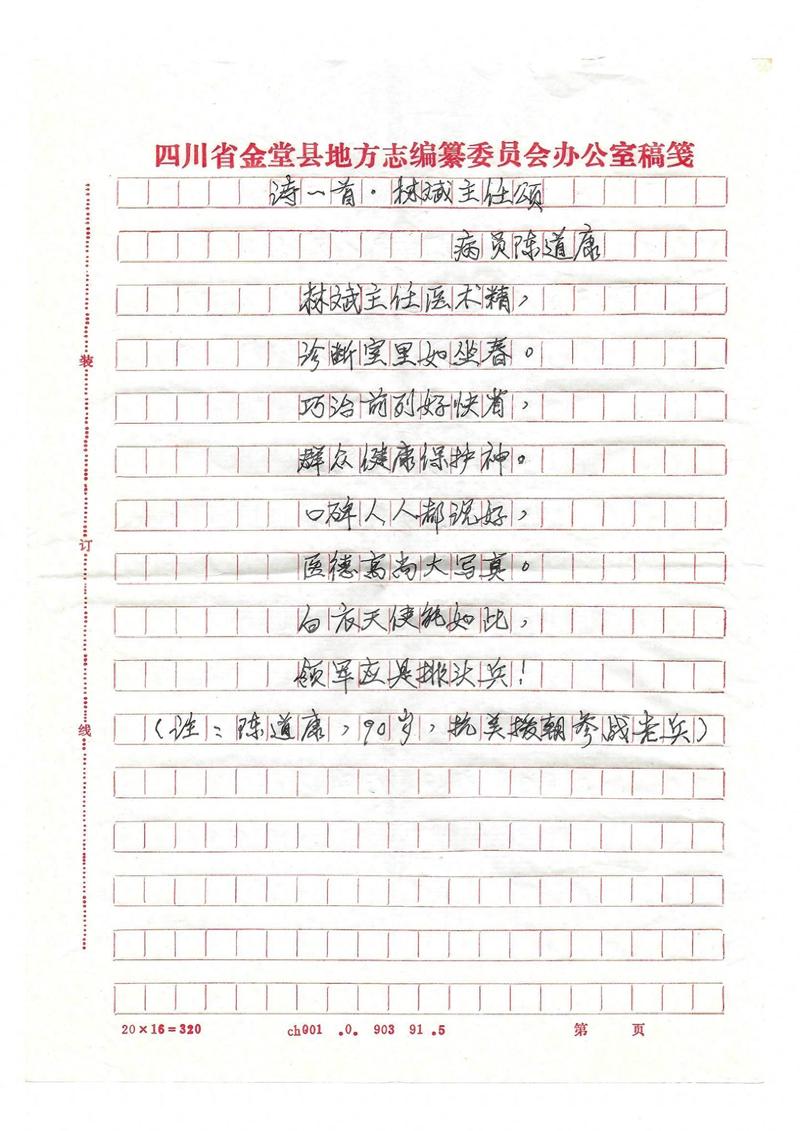 四川省金堂县地方志编纂委员会办公室稿笺
诗一首·林斌主任颂
病员陈道康
林斌主任医术精,
诊断室里如坐春。
巧治前列好快省,
群众健康保护神。
口碑人人都说好,
医德高尚大写真。
白衣天使能如此,
领军应是排头兵!
(注:陈道康,90岁,抗美援朝参战老兵)
装
订
线
20×16=320 ch001 .0. 903 91.5 第 页